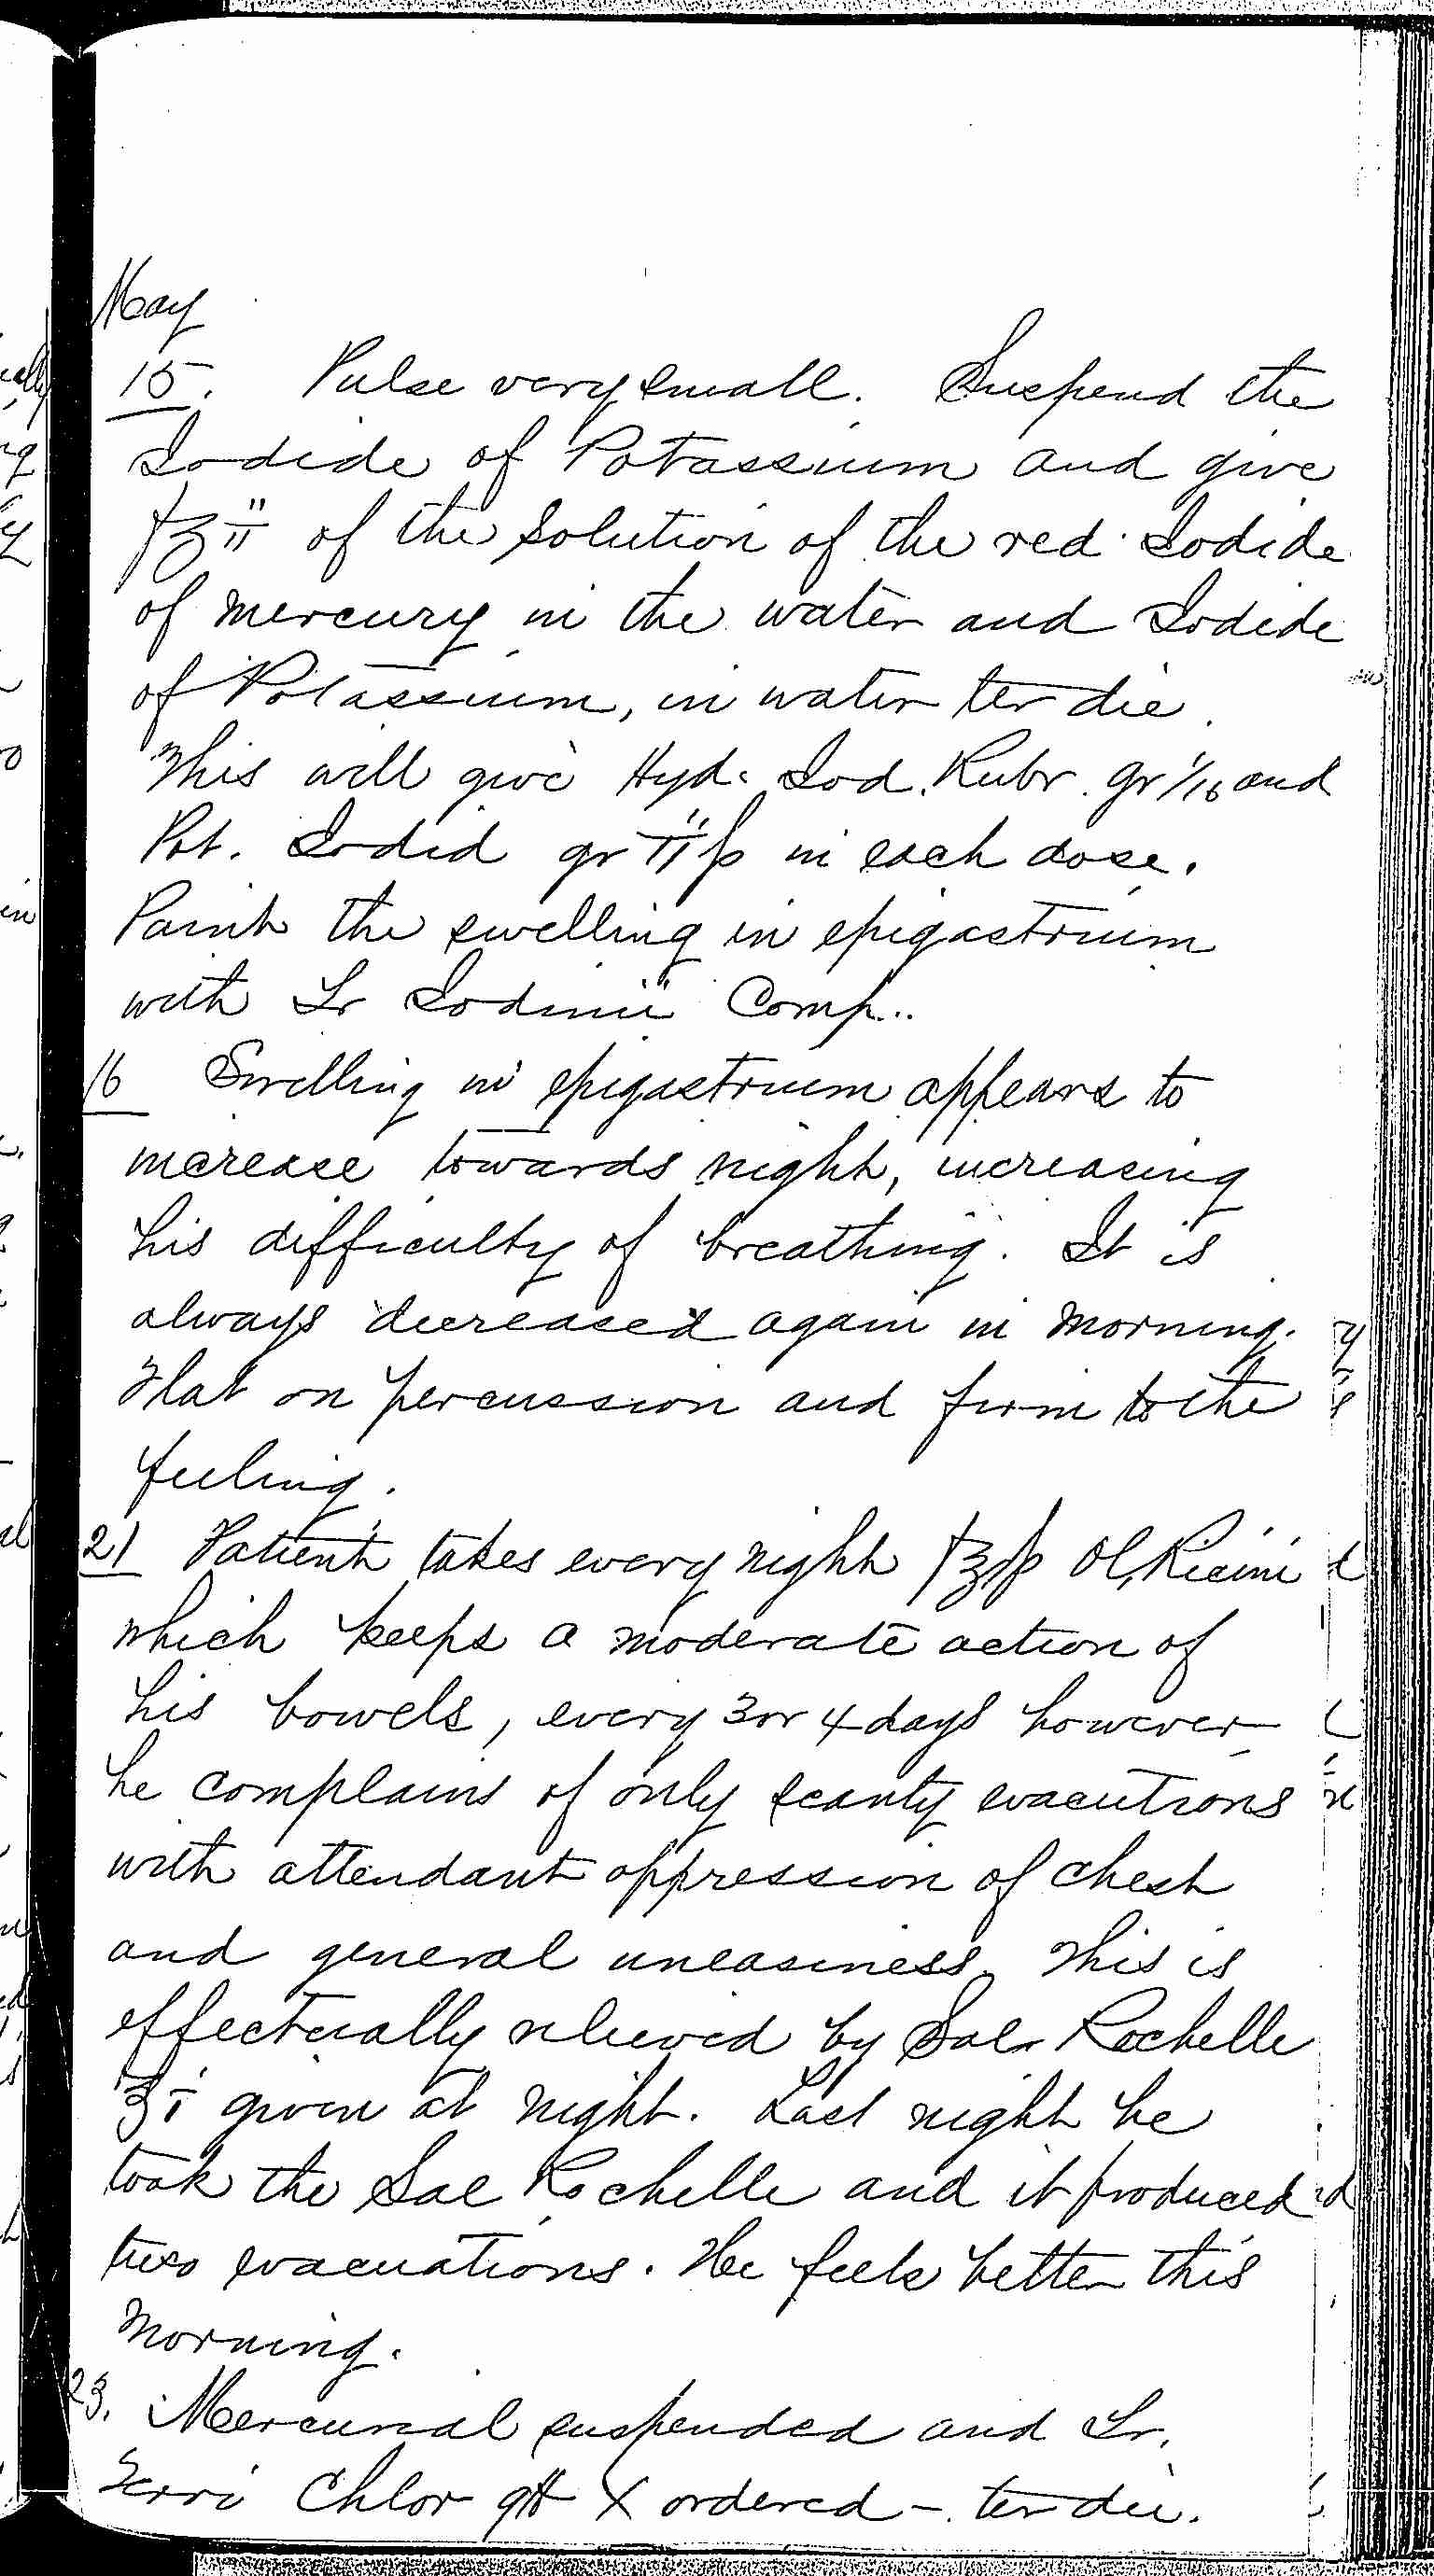 May
15. Pulse very small. Suspend the
Iodide of Potassium and give
fʒii of the solution of the red Iodide
of mercury in the water and Iodide
of Potassium, in water ter die.
This will give Hyd. Iod. Rubr. gr 1/16 and
Pot. Iodid gr iiſs in each dose.
Paint the swelling in epigastrium
with Tr Iodinii Comp..
16 Swelling in epigastrium appears to
increase towards night, increasing
his difficulty of breathing. It is
always decreased again in morning.
Flat on percussion and firm to the
feeling.
21 Patient takes every night fʒſs Ol, Ricini
which keeps a moderate action of
his bowels, every 3 or 4 days however
he complains of only scanty evacutions
with attendant oppression of chest
and general uneasiness. This is
effectually relieved by Sal. Rochelle
ʒi given at night. Last night he
took the Sal Rochelle and it produced
two evacuations. He feels better this
morning.
23. Mercurial suspended and Tr.
Ferri Chlor gtt X ordered - ter die.